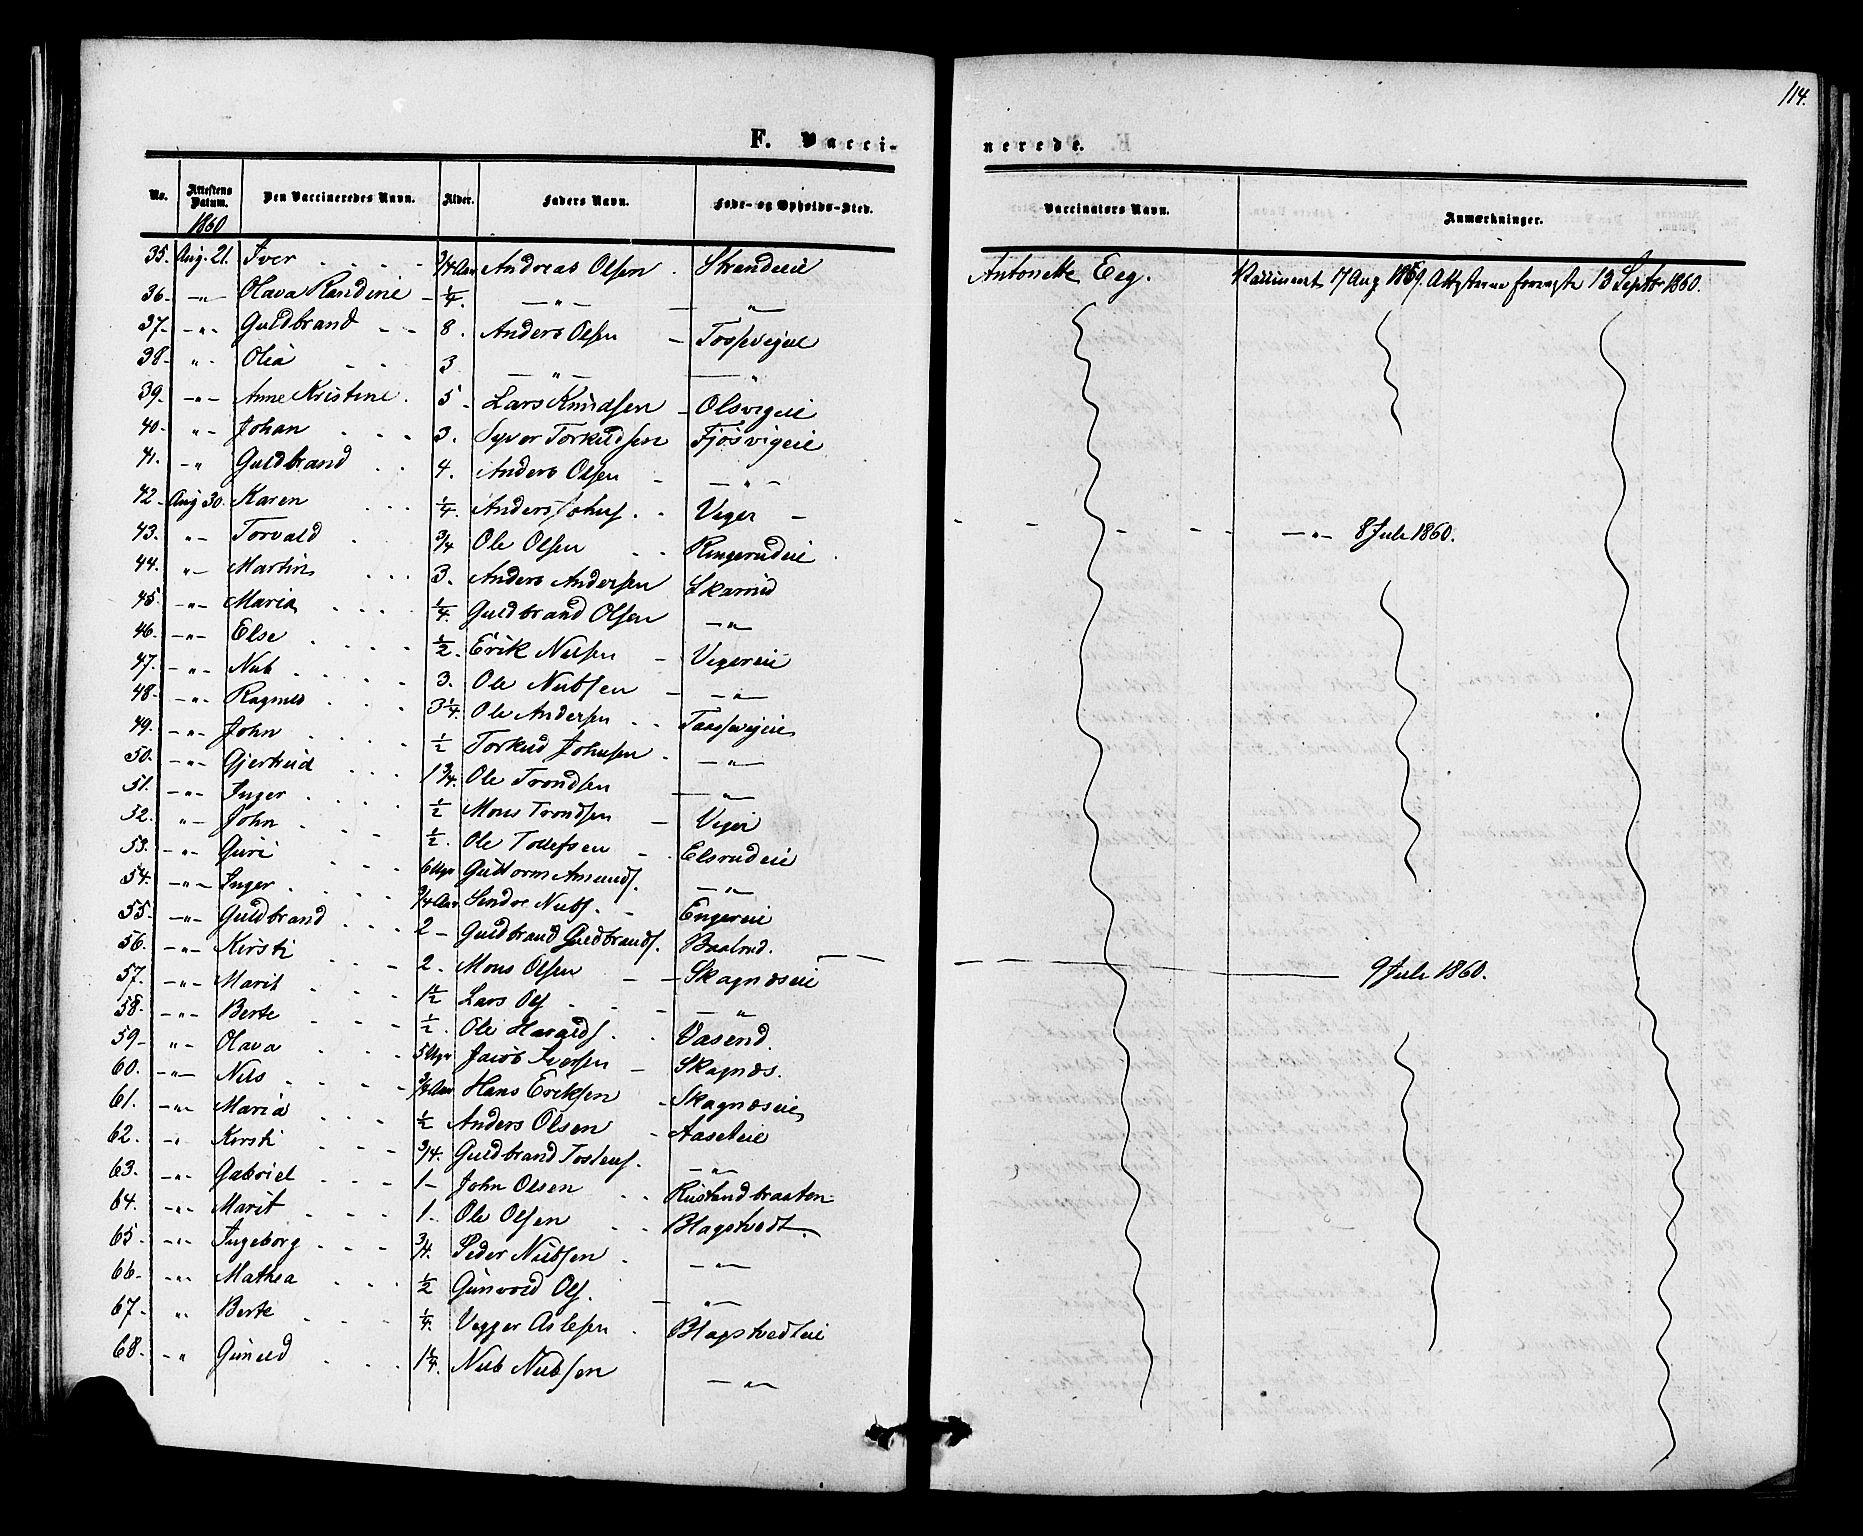 114.
F. Vaccinerede.
No. Attestens Datum. Den Vaccineredes Navn. Alder. Faders Navn. Føde- og Opholds-Sted. Vaccinators Navn. Anmærkninger.
1860
35. Aug. 21. Iver 3/4 Aar Andreas Olsen Strandeie Antonette Eeg. Vaccineert 17 Aug 1859. 13 Septbr 1860.
36. -"- Olava Randine 1/4. -"- -"-
37. -"- Guldbrand 8. Anders Olsen Tossevigeie
38. " Olia 3 -"- -"-
39. -"- Anne Kristine. 5 Lars Knudsen Olsvigeie
40. " Johan 3. Syver Torkildsen Fjøsvigeie
41. -" Guldbrand 4. Anders Olsen -"-
42. Aug 30. Karen 1/4. Anders Johns. Veger -"- 8 Juli 1860.
43. -"- Torvald 3/4 Ole Olsen Ringerudeie
44. "- Martin 3. Anders Andersen Skarrud
45. -"- Maria 1/4 Guldbrand Olsen -"-
46. -"- Else 1/2. Erik Nilsen Vegereie
47. -"- Nub 3. Ole Nubsen -"-
48. -"- Ragnild 3 1/4. Ole Andersen Taassevigeie
49. -"- John 1/2 Torkild Johnsen -"-
50. -"- Gjertrud 1 3/4. Ole Trondsen -"-
51. -"- Inger 1/2 Mons Trondsen Veger
52. " John 1/2. Ole Tollefsen Elsrudeie
53. -"- Guri 6 Uger Guttorm Amunds. -"-
54. -"- Inger 3/4 Aar Sondre Nubs. Engereie
55. -"- Guldbrand 2 Guldbrand Guldbrands. Baalrud.
56. -"- Kirsti 2. Mons Olsen Skagnæseie 9 Juli 1860.
57. -"- Marit 1 1/2 Lars Ols -"-
58. -"- Berte 1/2. Ole Haralds. Vasend.
59. " Olava 5 Uger Jacob Iversen Skagnæs.
60. -"- Nils 3/4 Aar Hans Eriksen Skagnæseie
61. -"- Maria 1/2 Anders Olsen Aaseteie
62. " Kirsti 3/4. Guldbrand Tostens. -"-
63. -"- Gabriel 1 John Olsen Rustandbraaten
64. -"- Marit 1. Ole Olsen Blagstvedt.
65. -"- Ingeborg 3/4. Peder Nubsen -"-
66. -"- Mathea 1/2 Gunvold Ols. -"-
67. " Berte 1/4. Vegger Aslesen Blagstvedteie
68. " Gunild 1 1/4. Nub Nubsen -"-